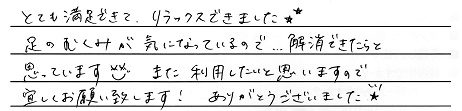 とても満足できて、リラックスできました★★
足のむくみが気になっているので…解消できたらと
思っています また利用したいと思いますので
宜しくお願い致します! ありがとうございました★